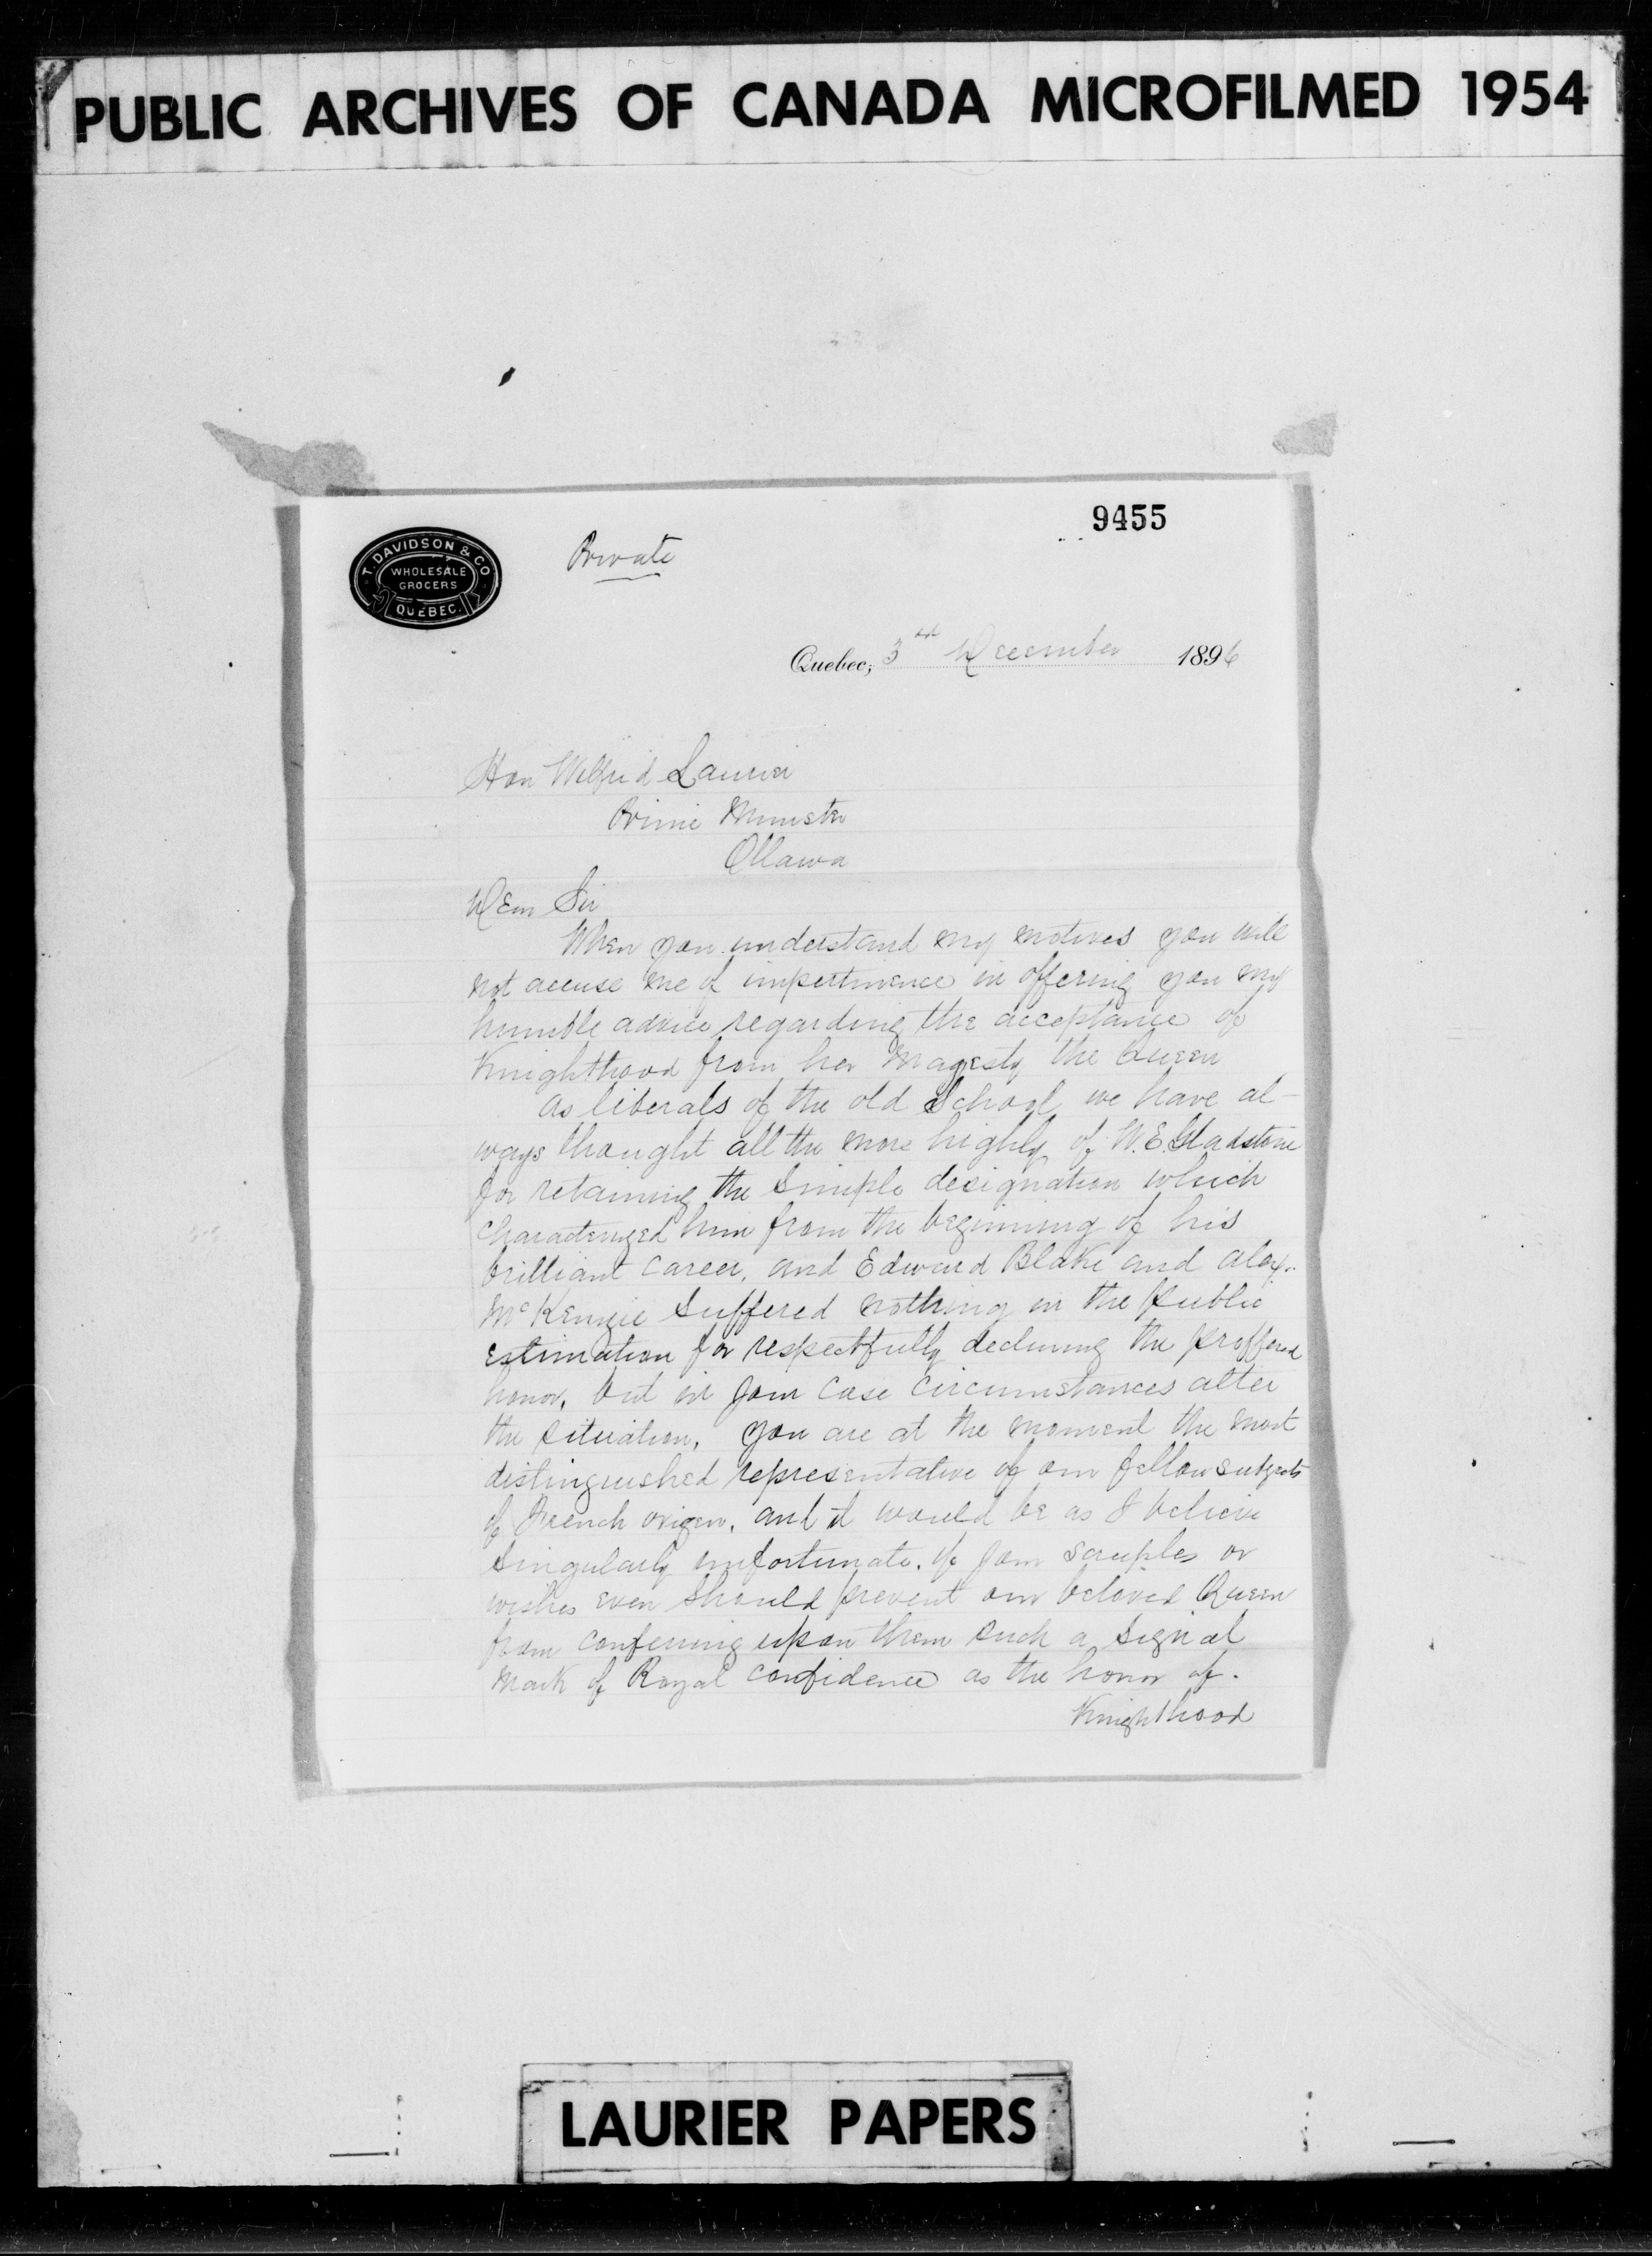 PUBLIC ARCHIVES OF CANADA MICROFILMED 1954
9455
T. DAVIDSON & CO
WHOLESALE
GROCERS
QUEBEC.
Private
Quebec, 3rd December 1896
Hon Wilfrid Laurier
Prime Minister
Ottawa
Dear Sir
When you understand my motives you will
not accuse me of impertinence in offering you my
humble advice regarding the acceptance of
Knighthood from her Magesty the Queen
As liberals of the old School we have al-
ways thought all the more highly of W. E. Gladstone
for retaining the simple designation which
characterized him from the beginning of his
brilliant career, and Edward Blake and Alex.
McKenzie suffered nothing in the public
estimation for respectfully declining the proffered
honor, but in your case circumstances alter
the situation. You are at the moment the most
distinguished representative of our fellow subjects
of French origen, and it would be as I believe
singularly unfortunate, if your scruples or
wishes even should prevent our beloved Queen
from conferring upon them such a signal
mark of Royal confidence as the honor of.
Knighthood
LAURIER PAPERS